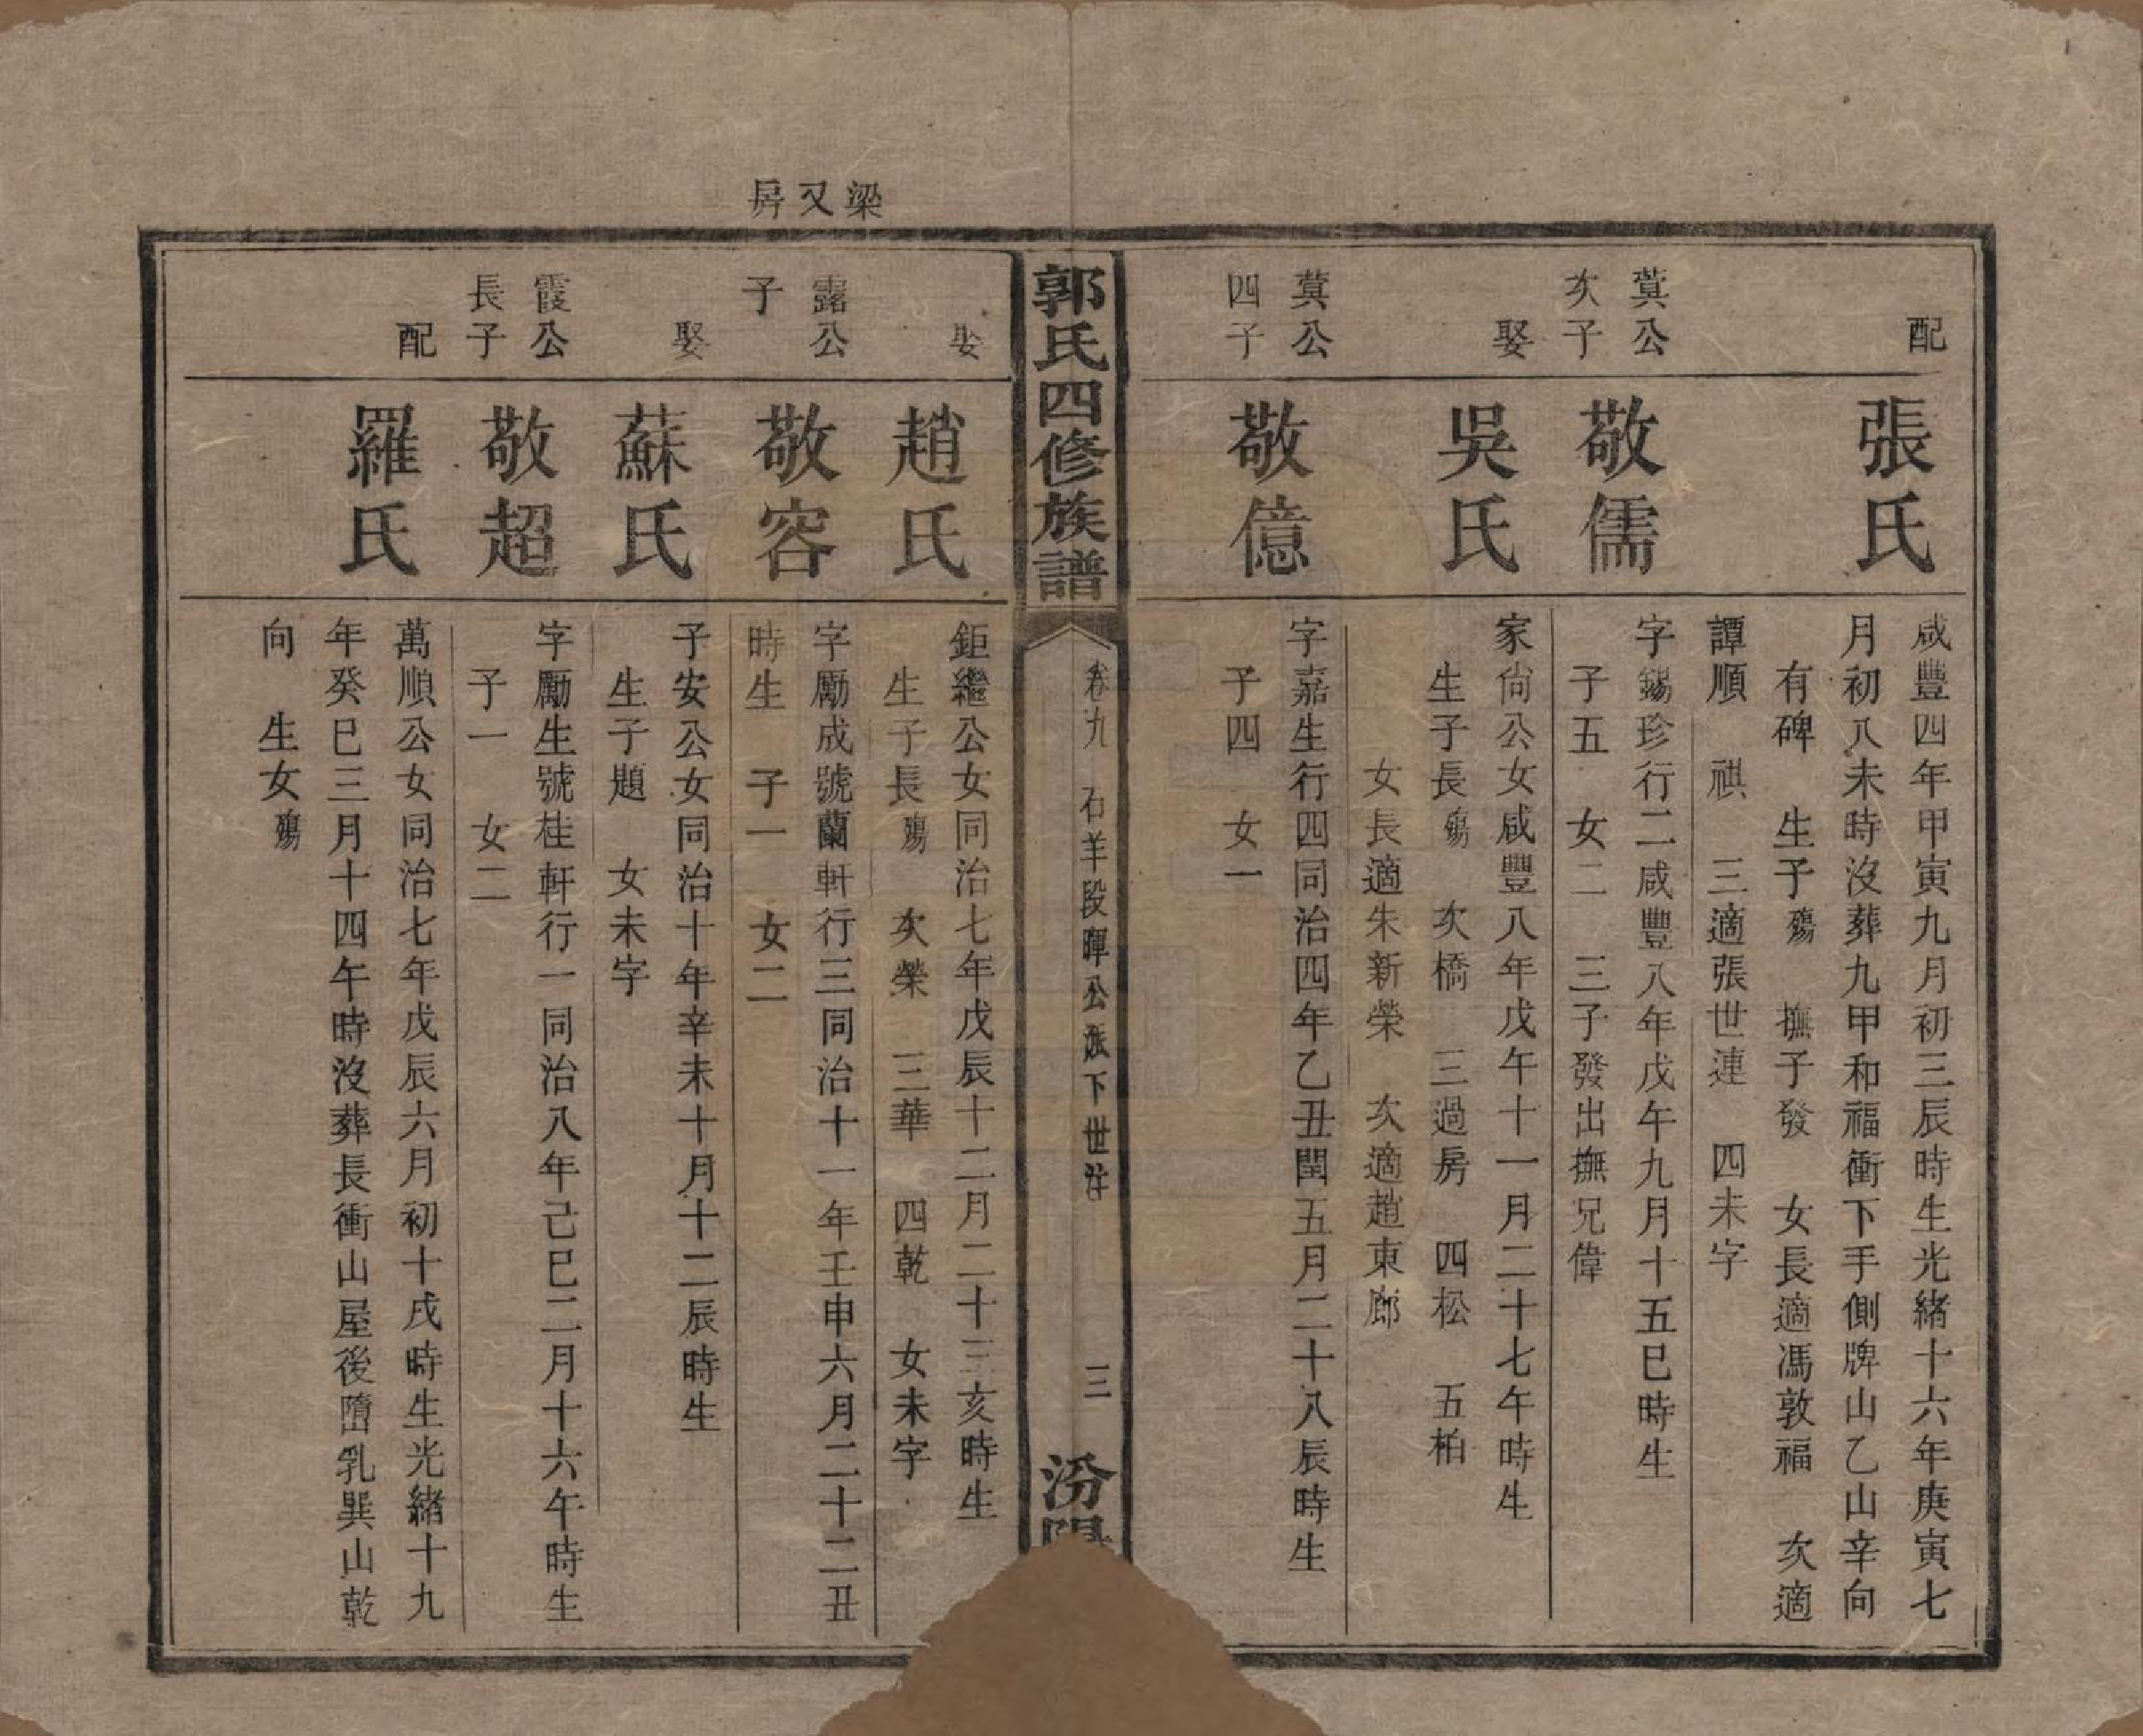 配
張氏
咸豐四年甲寅九月初三辰時生光緒十六年庚寅七
月初八未時沒葬九甲和福衝下手側牌山乙山辛向
有碑 生子殤 撫子發 女長適馮敦福 次適
譚順祺 三適張世連 四未字
蓂公
次子
敬儒
字錫珍行二咸豐八年戊午九月十五巳時生
子五 女二 三子發出撫兄偉
娶
吳氏
家尙公女咸豐八年戊午十一月二十七午時生
生子長殤 次橋 三過房 四松 五柏
女長適朱新榮 次適趙東廊
蓂公
四子
敬億
字嘉生行四同治四年乙丑閏五月二十八辰時生
子四 女一
郭氏四修族譜
卷九 石羊段暉公派下世
三
汾陽
梁又房
娶
趙氏
鉅繼公女同治七年戊辰十二月二十三亥時生
生子長殤 次榮 三華 四乾 女未字
露公
子
敬容
字勵成號蘭軒行三同治十一年壬申六月二十二丑
時生 子一 女二
娶
蘇氏
子安公女同治十年辛未十月十二辰時生
生子題 女未字
霞公
長子
敬超
字勵生號桂軒行一同治八年己巳二月十六午時生
子一 女二
配
羅氏
萬順公女同治七年戊辰六月初十戌時生光緒十九
年癸巳三月十四午時沒葬長衝山屋後乳巽山乾
向 生女殤